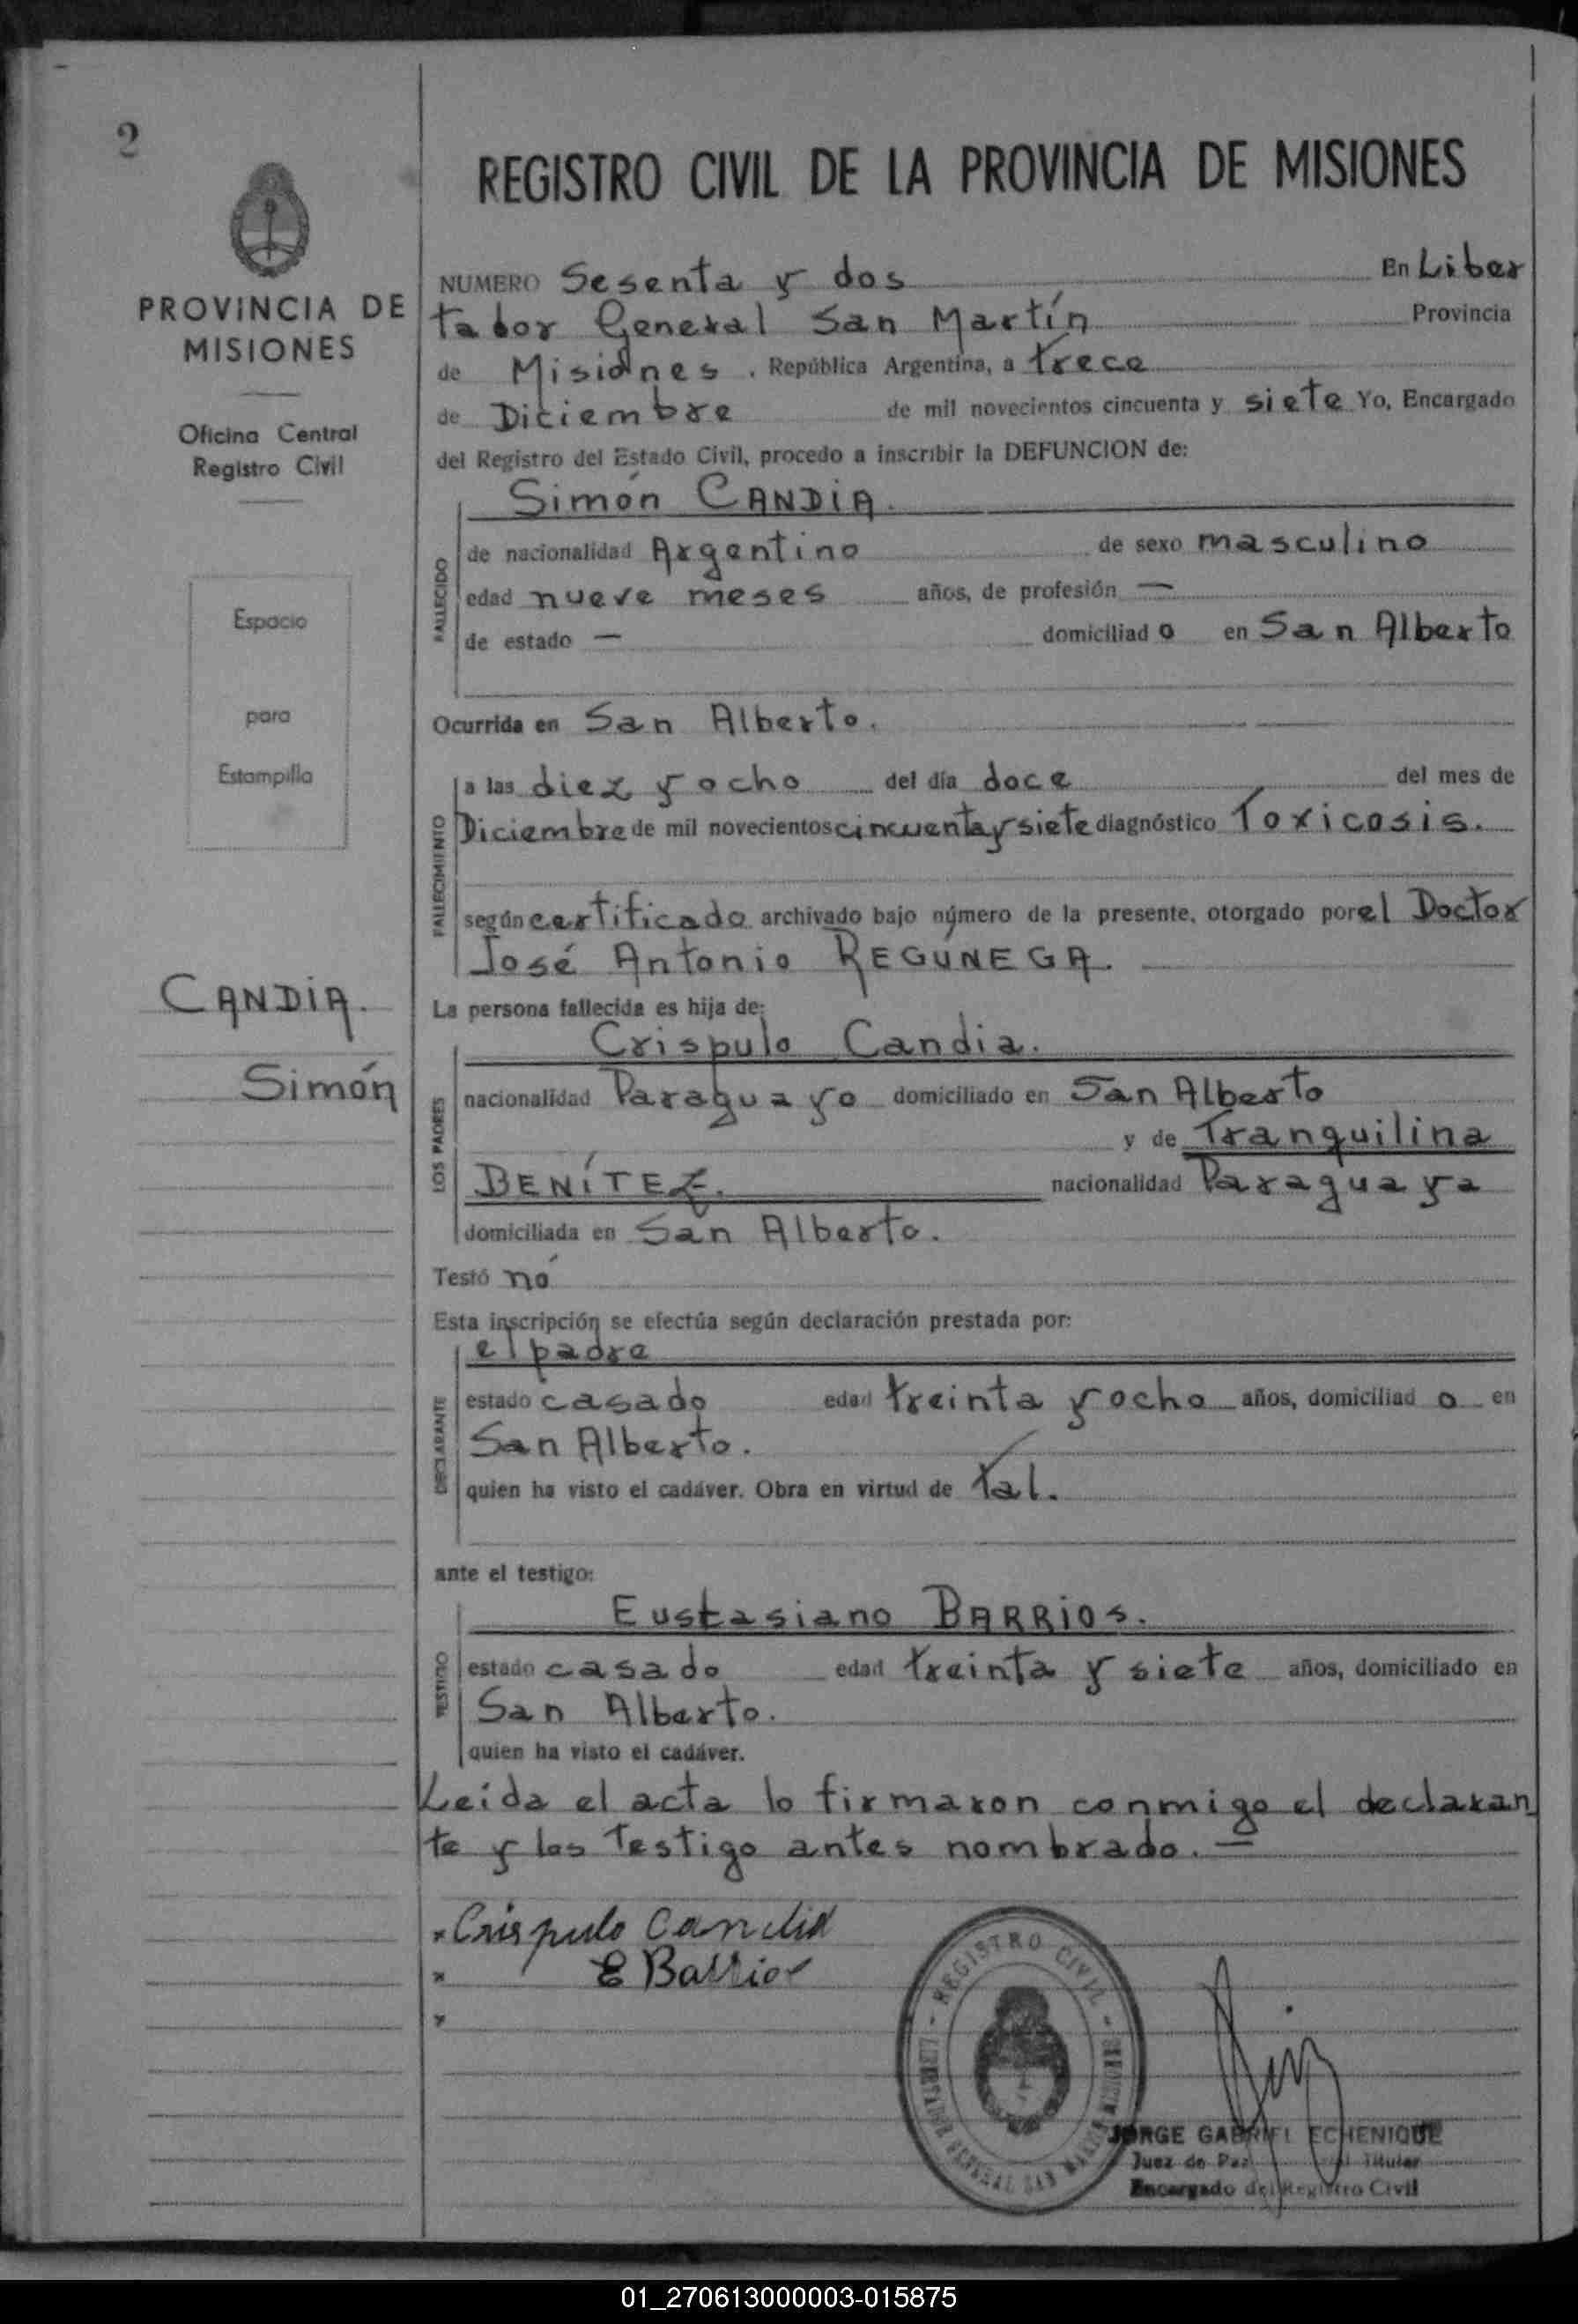 2
REGISTRO CIVIL DE LA PROVINCIA DE MISIONES
PROVINCIA DE
MISIONES
Oficina Central
Registro Civil
Espacio
para
Estampilla
CANDIA.
Simón
NUMERO Sesenta y dos En Liber
tador General San Martín Provincia
de Misiones, República Argentina, a trece
de Diciembre de mil novecientos cincuenta y siete Yo, Encargado
del Registro del Estado Civil, procedo a inscribir la DEFUNCION de:
Simón CANDIA.
FALLECIDO
de nacionalidad Argentino de sexo masculino
edad nueve meses años, de profesión —
de estado — domiciliado en San Alberto
Ocurrida en San Alberto.
FALLECIMIENTO
a las diez y ocho del día doce del mes de
Diciembre de mil novecientos cincuenta y siete diagnóstico Toxicosis.
según certificado archivado bajo número de la presente, otorgado por el Doctor
José Antonio REGÚNEGA.
La persona fallecida es hija de:
Crispulo Candia.
LOS PADRES
nacionalidad Paraguayo domiciliado en San Alberto
y de Tranquilina
BENÍTEZ. nacionalidad Paraguaya
domiciliada en San Alberto.
Testó no
Esta inscripción se efectúa según declaración prestada por:
el padre
DECLARANTE
estado casado edad treinta y ocho años, domiciliado en
San Alberto.
quien ha visto el cadáver. Obra en virtud de tal.
ante el testigo:
Eustasiano BARRIOS.
TESTIGO
estado casado edad treinta y siete años, domiciliado en
San Alberto.
quien ha visto el cadáver.
Leída el acta lo firmaron conmigo el declaran
te y los testigo antes nombrado. —
x Crispulo Candia
x E Barrios
x
REGISTRO CIVIL
LIBERTADOR GENERAL SAN MARTIN
JORGE GABRIEL ECHENIQUE
Juez de Paz Titular
Encargado del Registro Civil
01_270613000003-015875